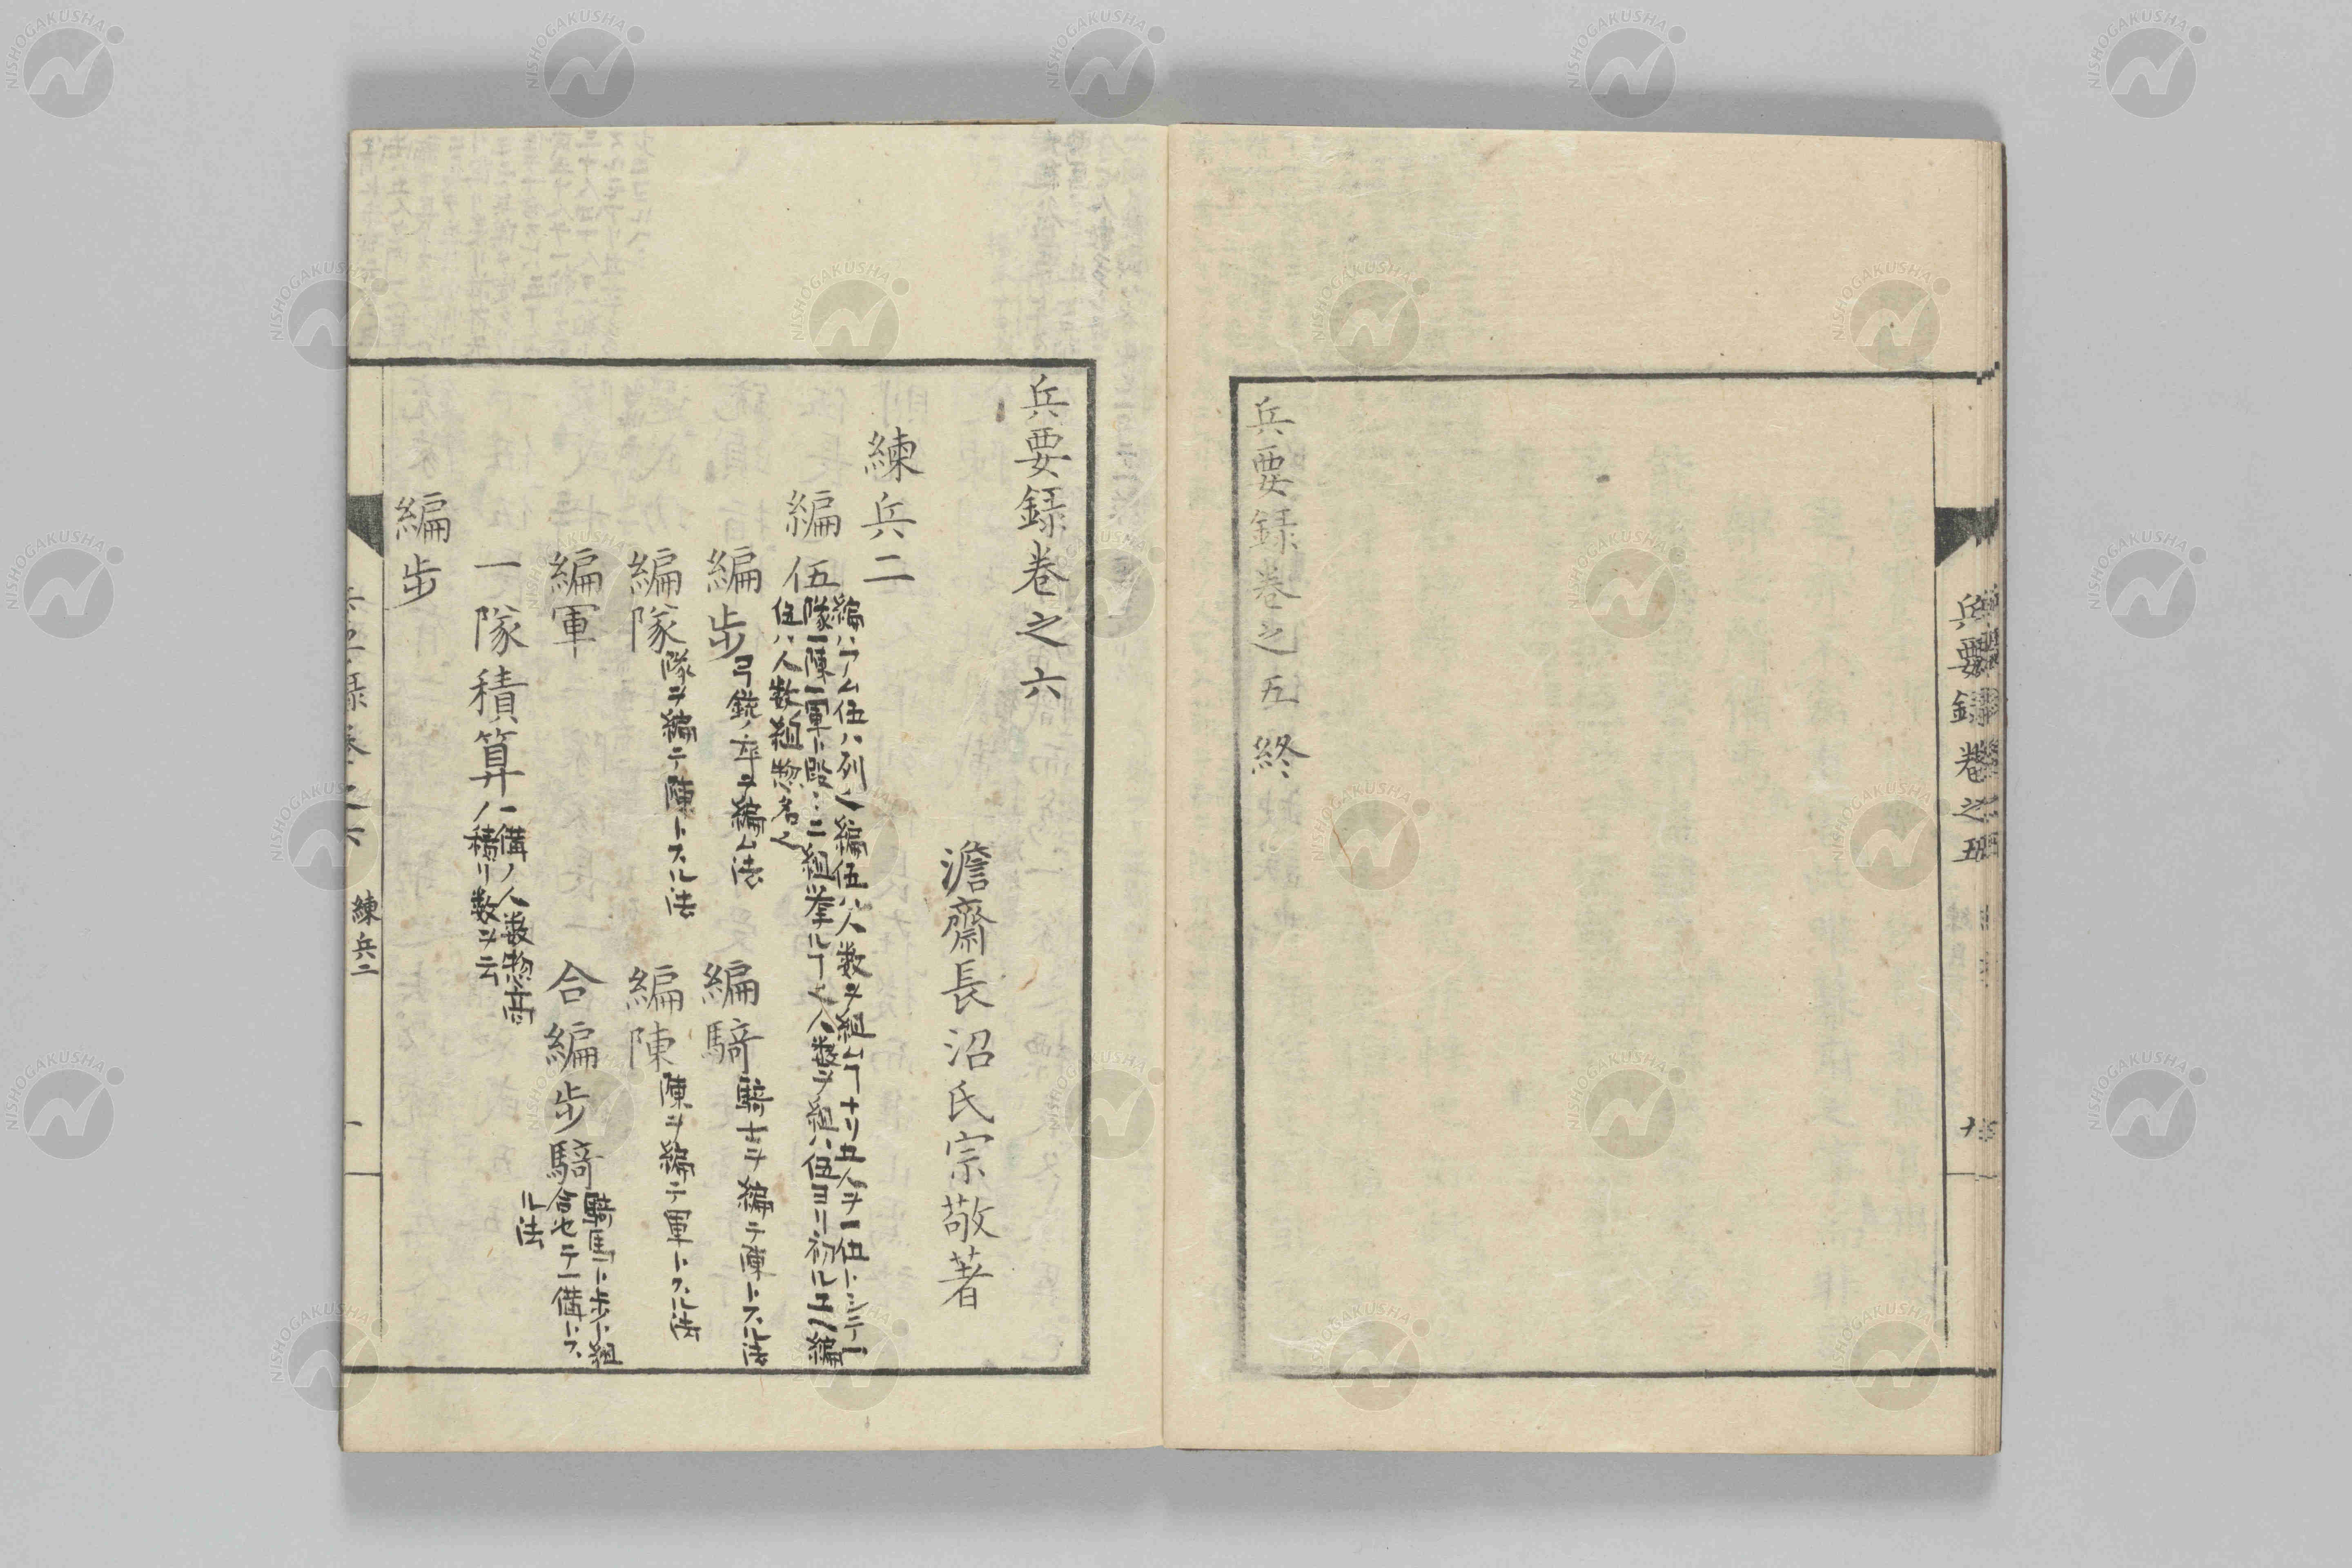 兵要録巻之五
兵要録巻之五終
兵要録巻之六
澹齋長沼氏宗敬著
練兵二
編伍
編ハアム伍ハ列也編伍ハ人数ヲ組ムヿナリ五人ヲ一伍トシテ一
隊一陳一軍ト段〻ニ組挙ルヿ也人数ヲ組ハ伍ヨリ初ルユヘ編
伍ハ人数組惣名也
編步
弓銃ノ卒ヲ編ム法
編騎
騎士ヲ編テ陳トスル法
編隊
隊ヲ編テ陳トスル法
編陳
陳ヲ編テ軍トスル法
編軍
合編步騎
騎馬ト步ト組
合セテ一備トス
ル法
一隊積算
一備ノ人数惣高
ノ積リ数ヲ云
編步
兵要録巻之六 練兵二 一
NISHOGAKUSHA